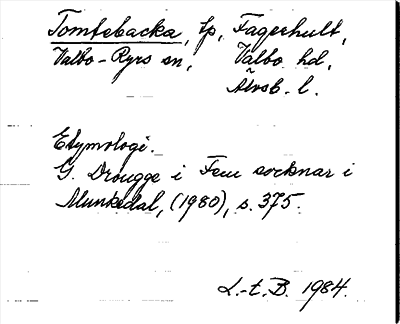 Tomtebacka, tp, Fagerhult,
Valbo-Ryrs sn, Valbo hd,
Älvsb. l.
Etymologi.
G. Drougge i Fem socknar i
Munkedal, (1980), s. 375.
L.-t. B. 1984.